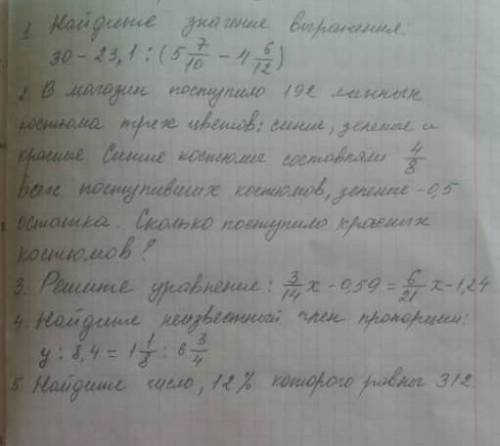 1 Найдите значение выражения:
30 - 23,1 : (5 7/10 - 4 6/12)
2. В магазин поступило 192 лыжных
костюма трех цветов: синие, зеленые и
красные Синие костюмы составляли 4/8
всех поступивших костюмов, зеленые - 0,5
остатка. Сколько поступило красных
костюмов?
3. Решите уравнение: 3/14 x - 0,59 = 6/21 x - 1,24
4. Найдите неизвестный член пропорции:
y : 8,4 = 1 1/8 : 6 3/4
5. Найдите число, 12% которого равны 312